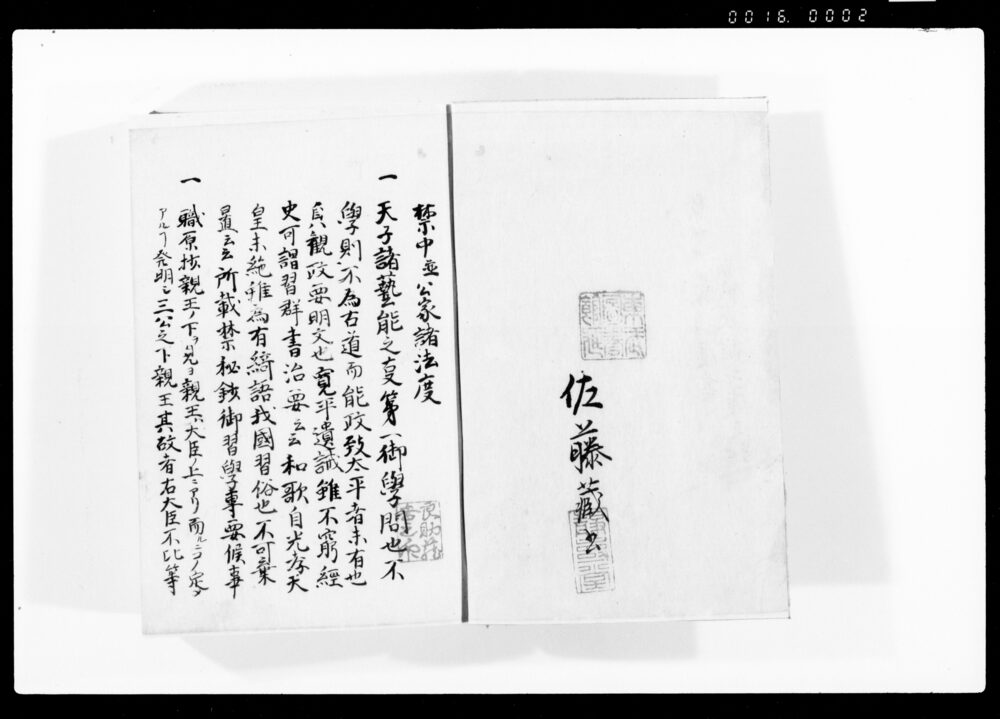 0016. 0002
佐藤蔵書
禁中並公家諸法度
一 天子諸藝能之夏第一御學問也不
學則不為古道而能政致太平者未有也
貞觀政要明文也寛平遺誡雖不窮經
史可謂習群書治要云云和歌自光孝天
皇未絶雖為有綺語我國習俗也不可棄
置云云所載禁秘鈔御習學専要候事
一 職原抄親王ノ下ヲ見ヨ親王ハ大臣ノ上ニアリ而ルニコノ定
アルヿ発明之三公之下親王其故者右大臣不比等